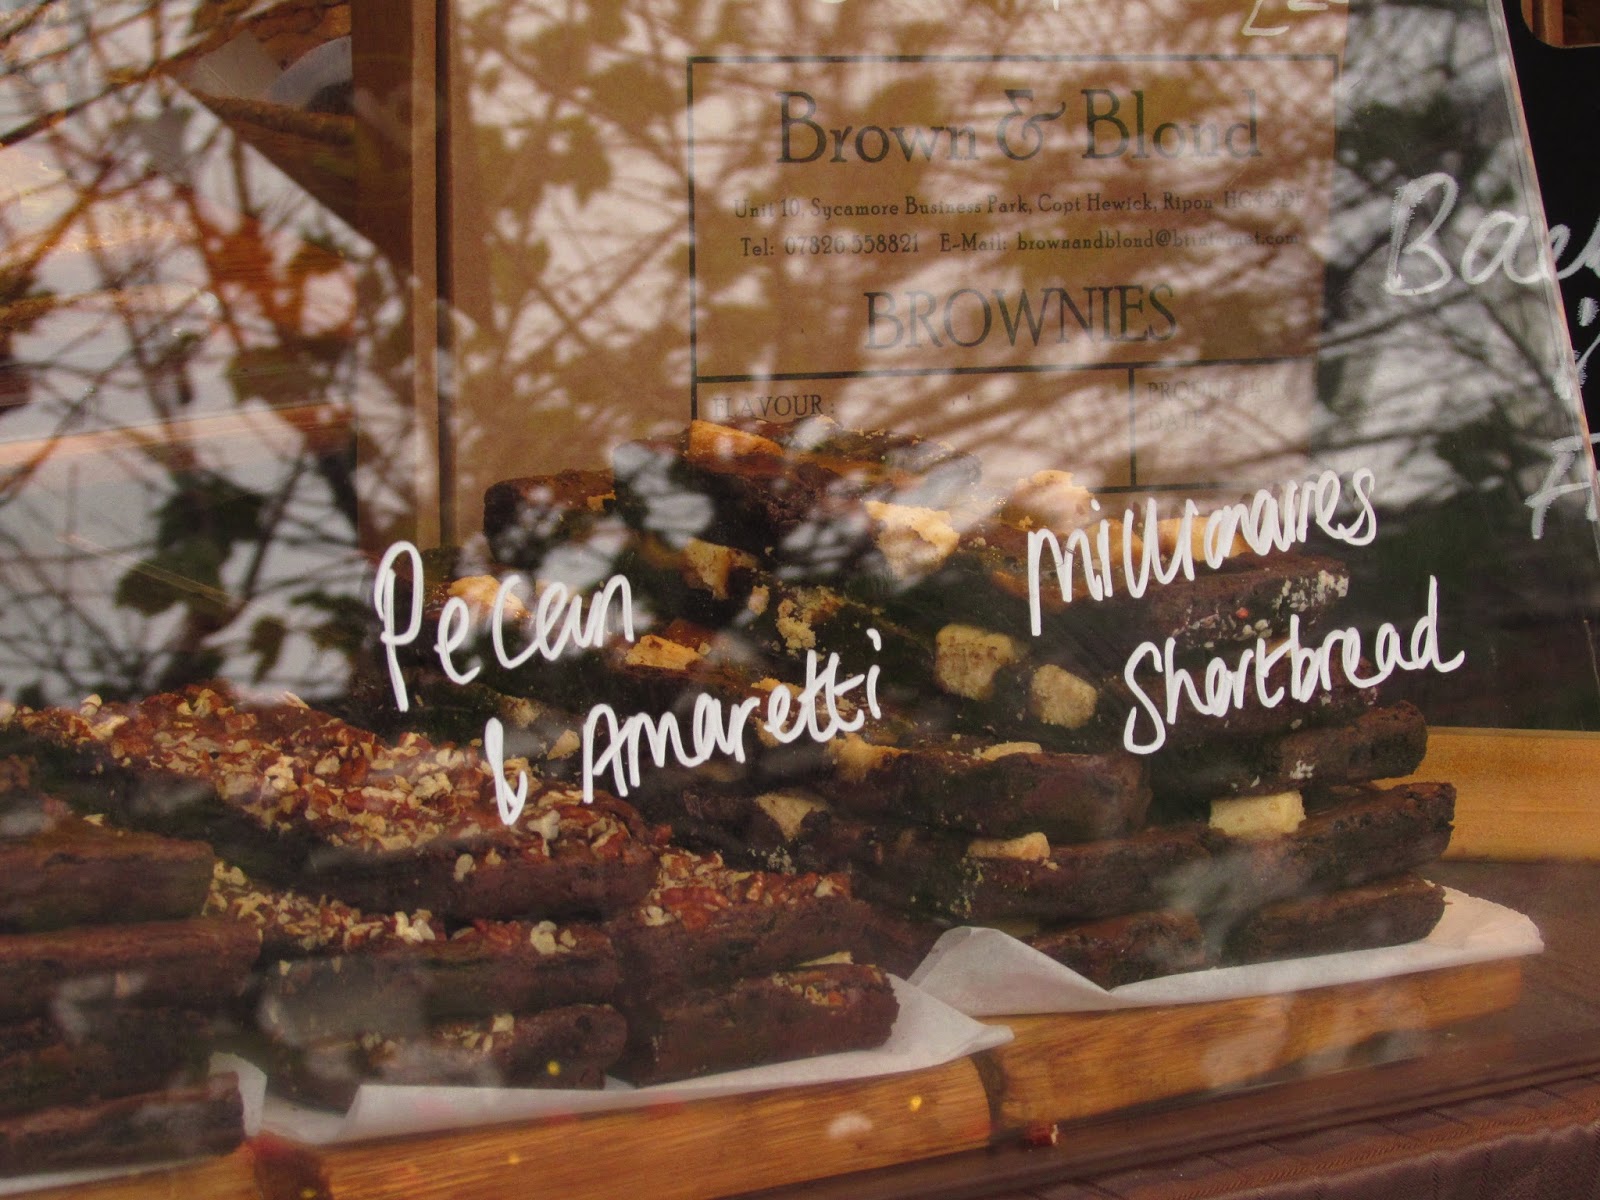 Brown & Blond
Unit 10, Sycamore Business Park, Copt Hewick, Ripon HG4 5DF
Tel: 07826 558821 E-Mail: brownandblond@btinternet.com
BROWNIES
FLAVOUR:
PRODUCTION
DATE
Pecan
& Amaretti
Millionaires
Shortbread